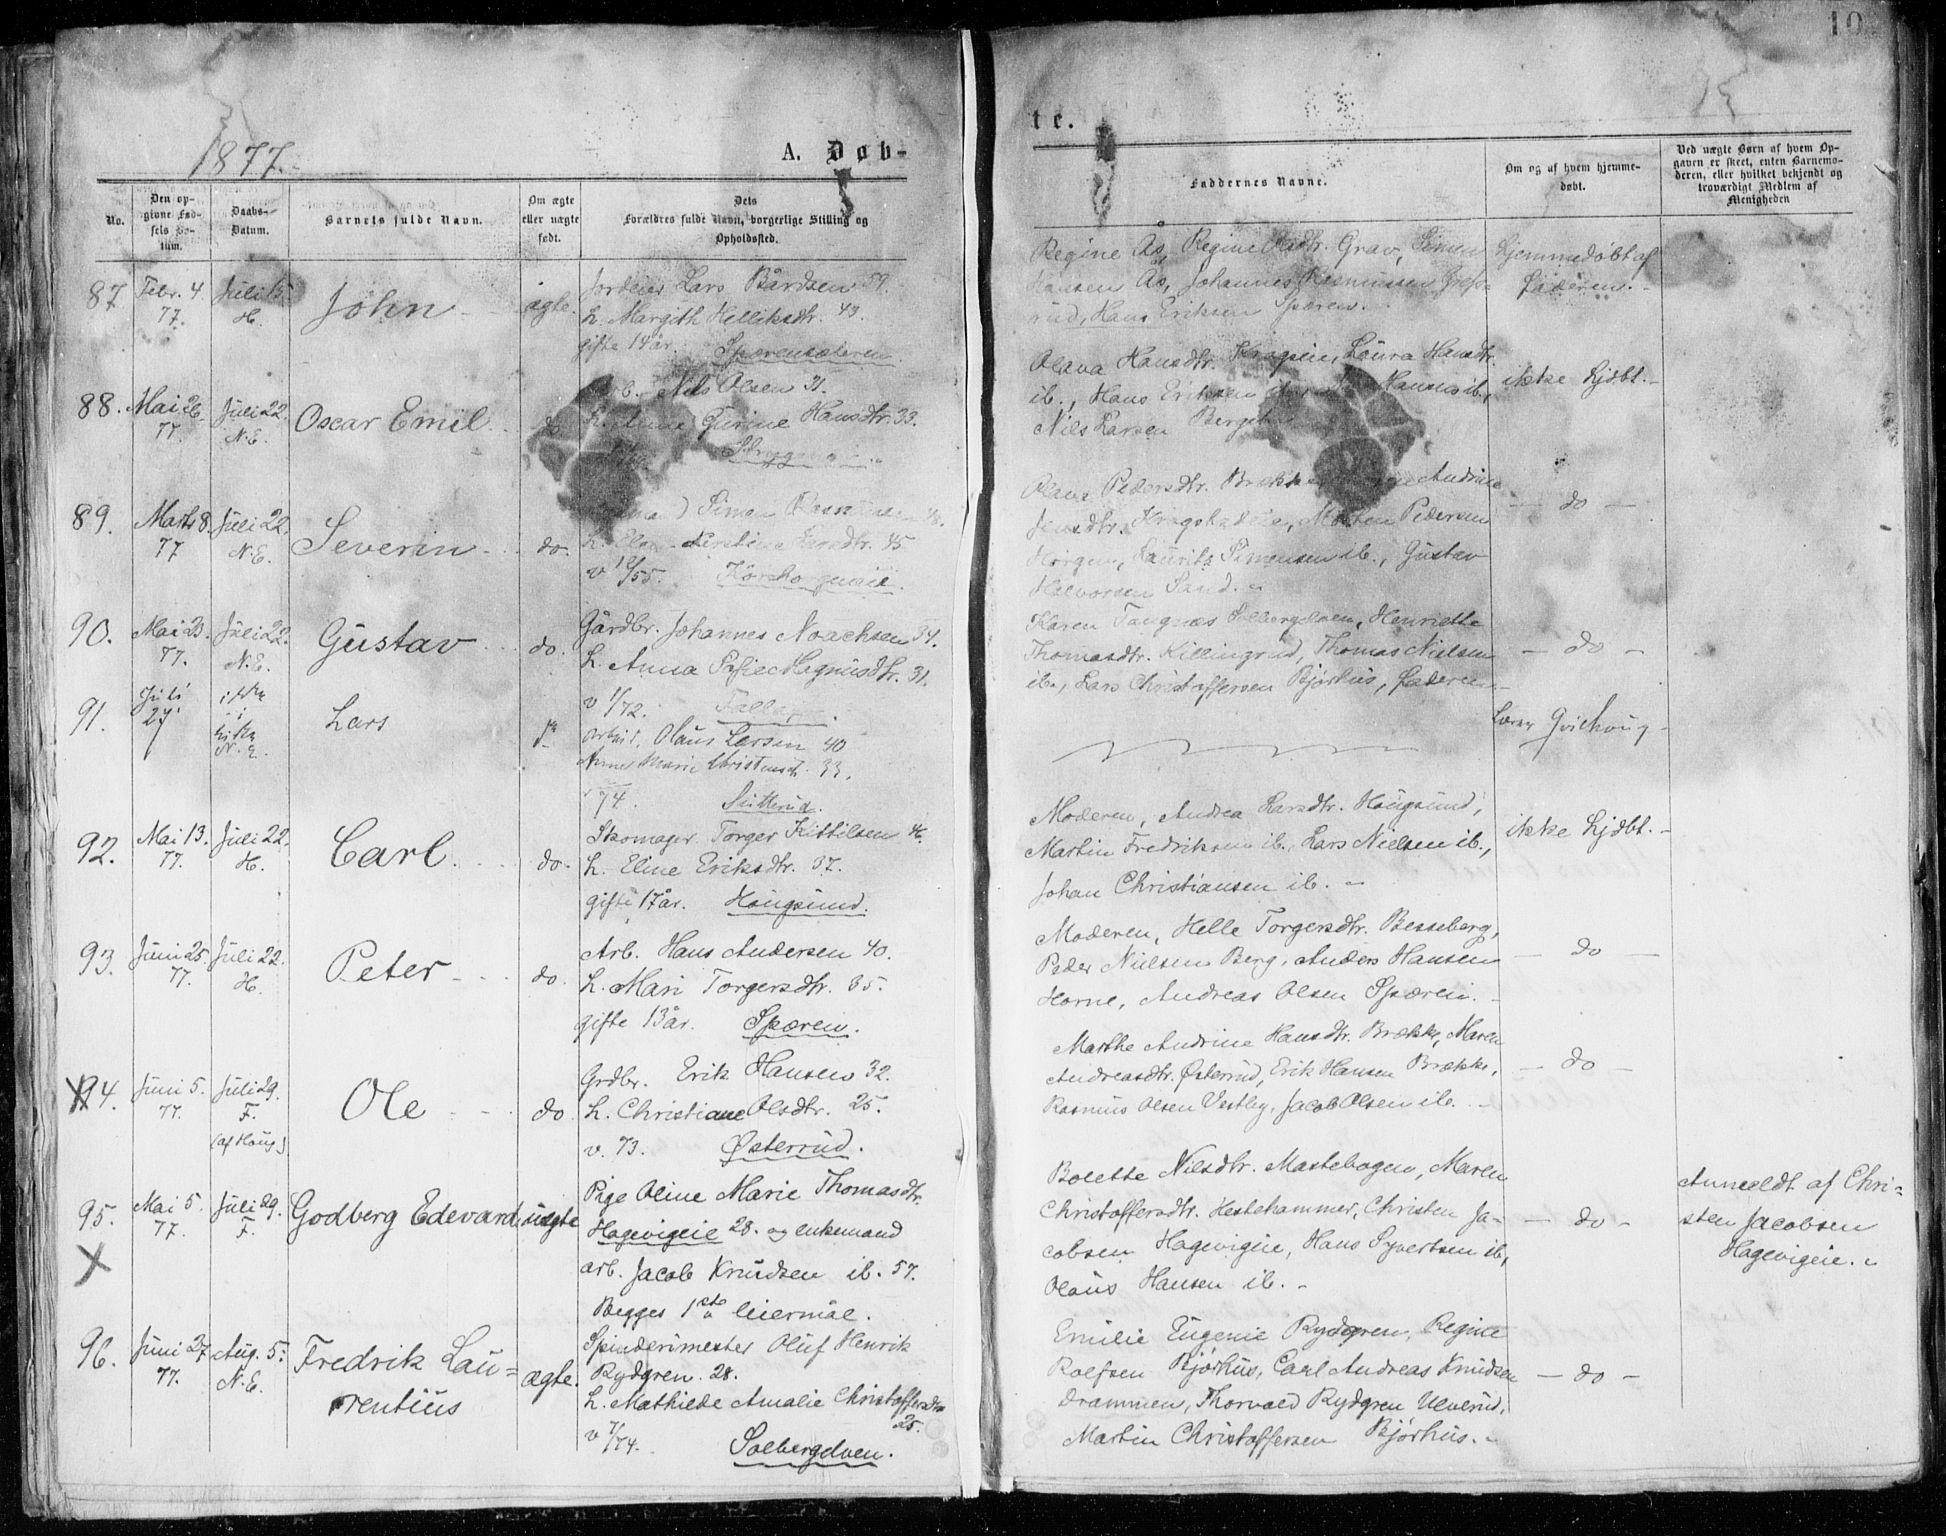 10
1877.
A. Døb-
te.
No.
Den op-
givne Fød-
sels Da-
tum.
Daabs-
Datum.
Barnets fulde Navn.
Om ægte
eller uægte
født.
Dets
Forældres fulde Navn, borgerlige Stilling og
Opholdssted.
Faddernes Navne.
Om og af hvem hjemme-
døbt.
Ved uægte Børn af hvem Op-
gaven er skeet, enten Barnemo-
deren, eller hvilket bekjendt og
troværdigt Medlem af
Menigheden
87.
Febr. 4
77.
Juli 15
H.
John
ægte.
Jordeier Lars Bårdsen 59.
h. Margith Helliksdtr. 43.
gifte 14 år. Spærensæteren.
Regine Ås, Regine Olsdtr. Grav, Simen
Hansen Ås, Johannes Rasmussen
rud, Hans Eriksen Spæren.
hjemmedøbt af
Faderen.
88.
Mai 26.
77.
Juli 22.
N.E.
Oscar Emil
do
Arb. Nils Olsen 31.
h. Anne Gurine Hansdtr. 33.
Olava Hansdtr. Laura Hansdtr.
ib., Hans Eriksen Hansen ib.,
Nils Larsen
ikke hjdbt.
89.
Marts 8.
77
Juli 22.
N.E.
Severin
do.
Simen Rasmussen 48.
h. Kirstine Larsdtr. 45
v 12/55.
Olava Pedersdtr. Andrine
Jensdtr. Morten Pedersen
Horgen, Laurits Simensen ib., Gustav
Halvorsen Sand.
do
90.
Mai 23.
77.
Juli 22.
N.E.
Gustav
do.
Gårdbr. Johannes Noachsen 34.
h. Anna Sofie Magnusdtr. 31.
v 1/72.
Karen Tangnæs Solbergelven, Henriette
Thomasdtr. Killingrud, Thomas Nielsen
ib., Lars Christoffersen Bjørhus, Faderen
do
91.
Juli
27
ikke
N.E.
Lars
Arbeid. Olaus Larsen 40
Anne Marie Christensd. 33.
74. Skutterud.
Lærer
92.
Mai 13.
77.
Juli 22.
H.
Carl.
do.
Skomager Torger Kittilsen 46.
h. Eline Eriksdtr. 37.
gifte 17 år. Hougsund.
Moderen, Andrea Larsdtr. Hougsund,
Martin Fredriksen ib., Lars Nielsen ib.,
Johan Christiansen ib.
ikke hjdbt.
93.
Juni 25.
77.
Juli 22.
H.
Peter
do.
Arb. Hans Andersen 40.
h. Mari Torgersdtr. 35.
gifte 13 år. Spæren.
Moderen, Helle Torgersdtr. Besseberg,
Peder Nielsen Berg, Anders Hansen
Horne, Andreas Olsen Spæren.
do
94.
Juni 5.
77.
Juli 29.
F.
(af Houg)
Ole
do.
Grdbr. Erik Hansen 32.
h. Christiane Olsdtr. 25.
v. 73. Østerrud.
Marthe Andrine Hansdtr. Brække, Maren
Andreasdtr. Østerrud, Erik Hansen Brække,
Rasmus Olsen Vestby, Jacob Olsen ib.
do
95.
X
Mai 5.
77.
Juli 29.
F.
Godberg Edevard
uægte
Pige Oline Marie Thomasdtr.
Hagevigeie 28. og enkemand
arb. Jacob Knudsen ib. 57.
Begges 1ste leiermål.
Bolette Nilsdtr. Mastebogen, Maren
Christoffersdtr. Hestehammer, Christen Ja-
cobsen Hagevigeie, Hans Syvertsen ib,
Olaus Hansen ib.
do
Anmeldt af Chri-
sten Jacobsen
Hagevigeie.
96.
Juni 27
77.
Aug. 5.
N.E.
Fredrik Lau-
rentius
ægte.
Spinderimester Oluf Henrik
Rydgren. 28.
h. Mathilde Amalie Christoffersdtr
25.
v 7/74. Solbergelven.
Emilie Eugenie Rydgren, Regine
Rolfsen Bjørhus, Carl Andreas Knudsen
Drammen, Thorvald Rydgren Ulverud,
Martin Christoffersen Bjørhus.
do